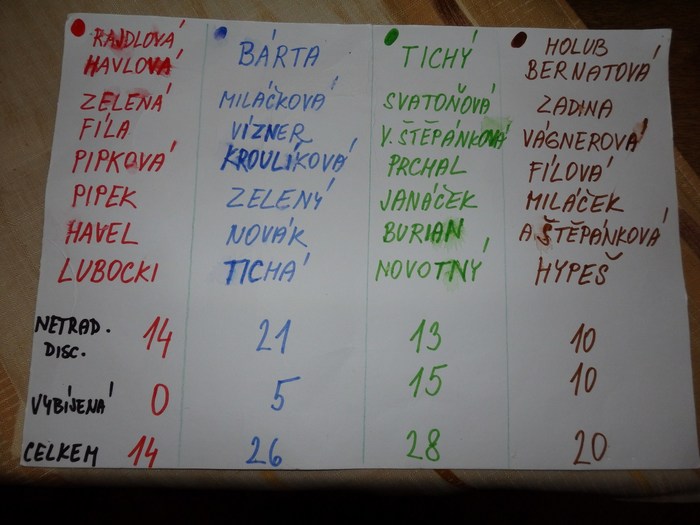 RAJDLOVÁ
HAVLOVÁ
ZELENÁ
FÍLA
PIPKOVÁ
PIPEK
HAVEL
LUBOCKI
BÁRTA
MILÁČKOVÁ
VÍZNER
KROULÍKOVÁ
ZELENÝ
NOVÁK
TICHÁ
TICHÝ
SVATOŇOVÁ
V. ŠTĚPÁNKOVÁ
PRCHAL
JANÁČEK
BURIAN
NOVOTNÝ
HOLUB
BERNATOVÁ
ZADINA
VÁGNEROVÁ
FÍLOVÁ
MILÁČEK
A. ŠTĚPÁNKOVÁ
HYPEŠ
NETRAD. DISC. 14 21 13 10
VYBÍJENÁ 0 5 15 10
CELKEM 14 26 28 20